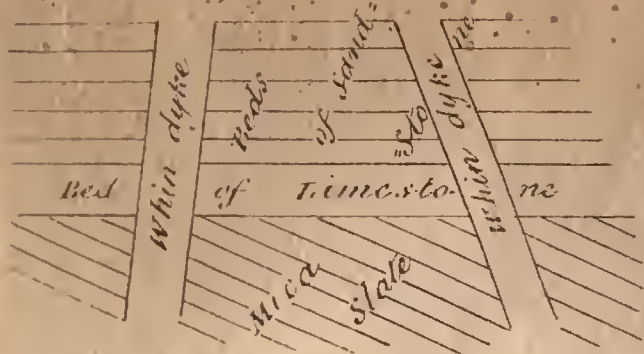 whin dyke
Beds of sand=
=sto ne
whin dyke
Bed of Limesto- ne
Mica Slate